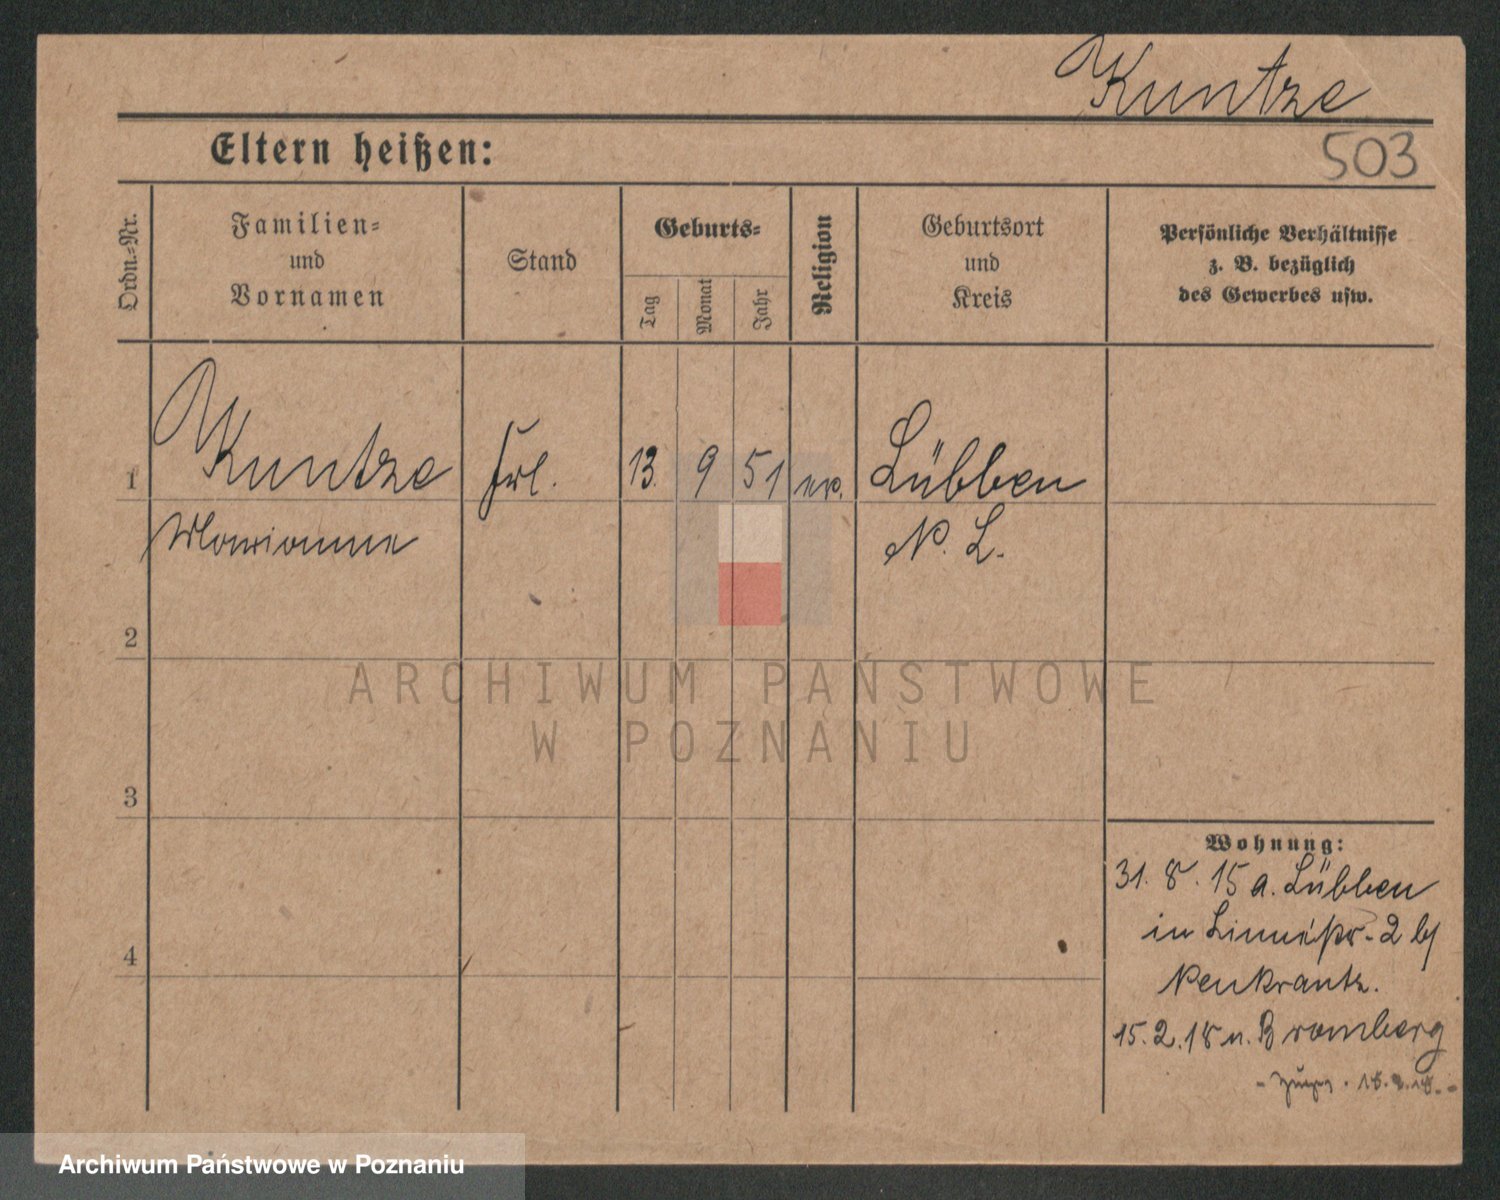 Kuntze
Eltern heißen:
503
Ordn.-Nr.
Familien-
und
Vornamen
Stand
Geburts-
Tag
Monat
Jahr
Religion
Geburtsort
und
Kreis
Persönliche Verhältnisse
z. B. bezüglich
des Gewerbes usw.
1
Kuntze
Frl.
13.
9
51
ev.
Lübben
Marianne
N. L.
2
ARCHIWUM PAŃSTWOWE
W POZNANIU
3
Wohnung:
31. 8. 15 a. Lübben
in Linnéstr. 2 b/
4
Penkrantz.
15. 2. 18 n. Bromberg
18.2.18.
Archiwum Państwowe w Poznaniu